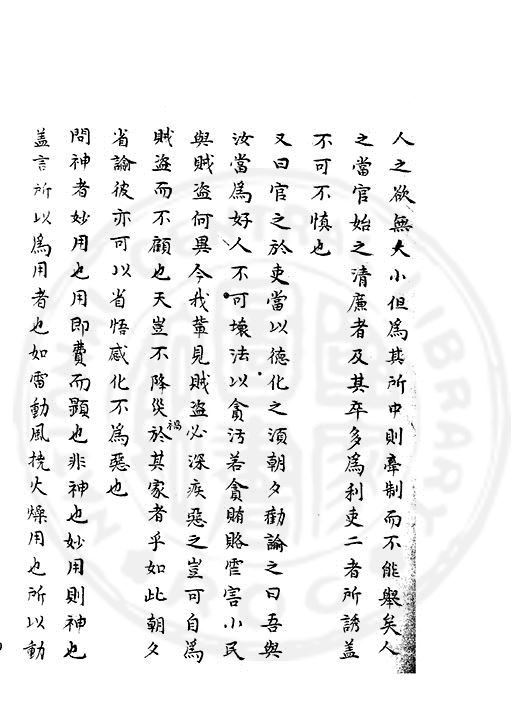 人之欲無大小但為其所中則牽制而不能舉矣人
之當官始之清廉者及其卒多為利吏二者所誘蓋
不可不慎也
又曰官之於吏當以德化之須朝夕勸諭之曰吾與
汝當為好人不可壞法以貪污若貪賄賂虐害小民
與賊盜何異今我輩見賊盜必深疾惡之豈可自為
賊盜而不顧也天豈不降災禍於其家者乎如此朝夕
省諭彼亦可以省悟感化不為惡也
問神者妙用也用即費而顯也非神也妙用則神也
蓋言所以為用者也如雷動風撓火燥用也所以動